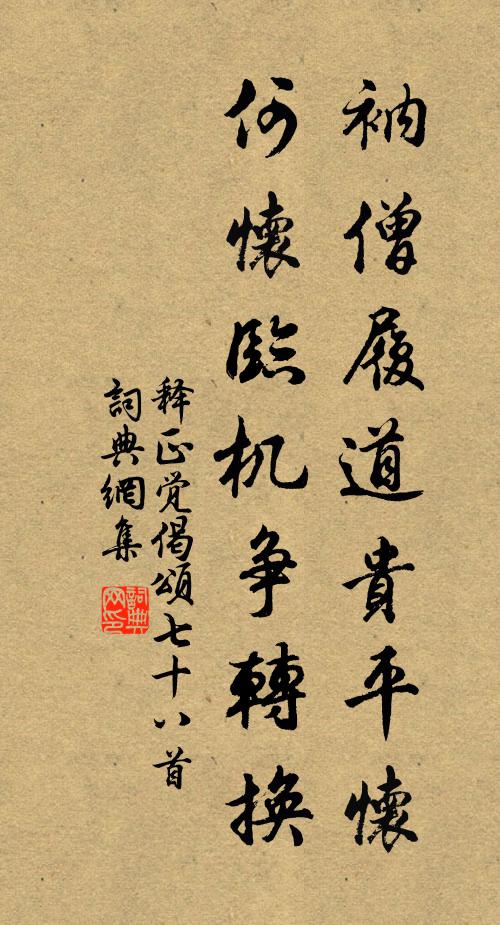 衲僧履道貴平懷
何懷臨机争轉換
释正觉偈頌七十八首
詞典網集
詞典网印